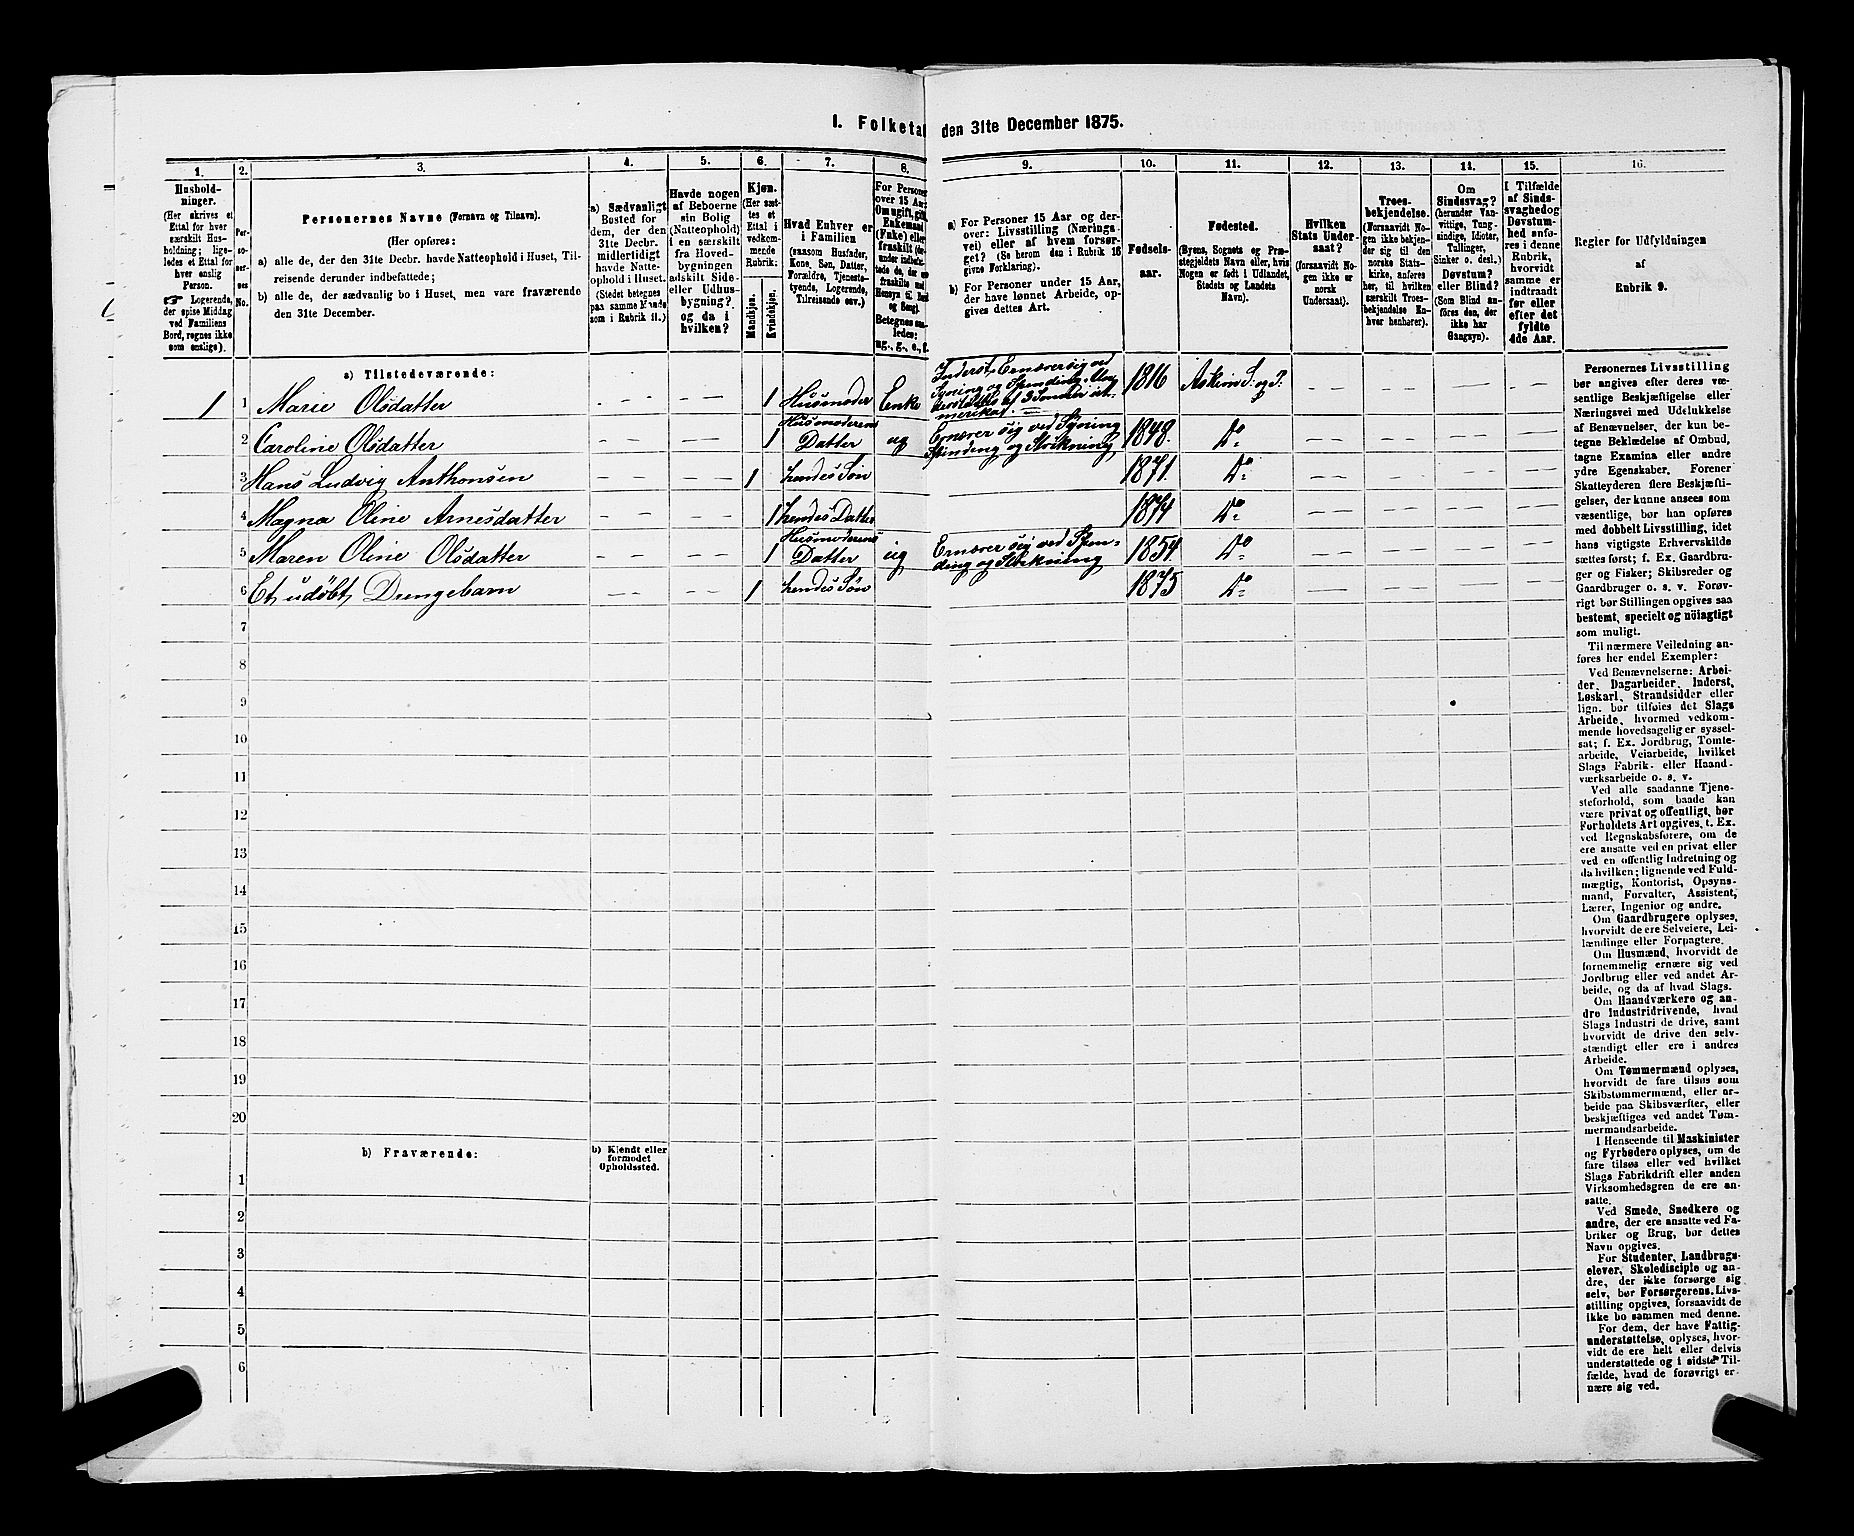 I. Folketal den 31te December 1875.
1.
Hushold-
ninger.
(Her skrives et
Ettal for hver
særskilt Hus-
holdning; lige-
ledes et Ettal for
hver enslig
Person.
Logerende,
der spise Middag
ved Familiens
Bord, regnes ikke
som enslige).
2.
Per-
so-
ner-
nes
No.
3.
Personernes Navne (Fornavn og Tilnavn).
(Her opføres:
a) alle de, der den 31te Decbr. havde Natteophold i Huset, Til-
reisende derunder indbefattede;
b) alle de, der sædvanlig bo i Huset, men vare fraværende
den 31te December.
4.
a) Sædvanligt
Bosted for
dem, der den
31te Decbr.
midlertidigt
havde Natte-
ophold i Huset.
(Stedet betegnes
paa samme Maade
som i Rubrik 11.)
5.
Havde nogen
af Beboerne
sin Bolig
(Natteophold)
i en særskilt
fra Hoved-
bygningen
adskilt Side-
eller Udhus-
bygning?
og da i
hvilken?
6.
Kjøn.
(Her sæt-
tes et
Ettal i
vedkom-
mende
Rubrik:
Mandkjøn.
Kvindekjøn.
7.
Hvad Enhver er
i Familien
(saasom Husfader,
Kone, Søn, Datter,
Forældre, Tjeneste-
tyende, Logerende,
Tilreisende osv.)
8.
For Personer
over 15 Aar:
Om ugift, gift,
Enkemand
(Enke) eller
fraskilt
Betegnes saa-
ledes:
ug., g., e., f.
9.
a) For Personer 15 Aar og der-
over: Livsstilling (Nærings-
vei) eller af hvem forsør-
get? (Se herom den i Rubrik 16
givne Forklaring).
b) For Personer under 15 Aar,
der have lønnet Arbeide, op-
gives dettes Art.
10.
Fødsels-
aar.
11.
Fødested.
(Byens, Sognets og Præ-
stegjeldets Navn eller, hvis
Nogen er født i Udlandet,
Stedets og Landets
Navn).
12.
Hvilken
Stats Under-
saat?
(forsaavidt No-
gen ikke er
norsk
Undersaat).
13.
Troes-
bekjendelse.
(Forsaavidt No-
gen ikke bekjen-
der sig til den
norske Stats-
kirke, anføres
her, til hvilken
særskilt Troes-
bekjendelse En-
hver henhører).
14.
Om
Sindssvag?
(herunder Van-
vittige, Tung-
sindige, Idioter,
Tullinger,
Sinker o. desl.)
Døvstum?
eller Blind?
(Som Blind an-
føres den, der
ikke har
Gangsyn).
15.
I Tilfælde
af Sinds-
svaghed og
Døvstum-
hed anfø-
res i denne
Rubrik,
hvorvidt
samme er
indtraadt
før eller
efter det
fyldte
4de Aar.
16.
Regler for Udfyldningen
af
Rubrik 9.
a) Tilstedeværende:
1 1 Marie Olsdatter - - - - - - 1 Husmoder Enke Inderst, Ernærer sig ved Syning og Spinding. Understøttes af 3 Sønner i Amerika. 1816 Askim S. og P. - - - - - -
2 Caroline Olsdatter - - - - - - 1 Husmoderens Datter ug Ernærer sig ved Syning Spinding og Strikning 1848. Do - - - - - -
3 Hans Ludvig Anthonsen - - - - - 1 hendes Søn 1871. Do - - - - - -
4 Magna Oline Arnesdatter - - - - 1 hendes Datter 1874 Do - - - - - -
5 Maren Oline Olsdatter - - - - 1 Husmoderens Datter ug Ernærer sig ved Spinding og Strikning 1854 Do - - - - - -
6 Et udøbt Drengebarn - - - - 1 hendes Søn 1875 Do - - - - - -
7
8
9
10
11
12
13
14
15
16
17
18
19
20
b) Fraværende:
b) Kjendt eller
formodet
Opholdssted.
1
2
3
4
5
6
Personernes Livsstilling
bør angives efter deres væ-
sentlige Beskjæftigelse eller
Næringsvei med Udelukkelse
af Benævnelser, der kun be-
tegne Beklædelse af Ombud,
tagne Examina eller andre
ydre Egenskaber. Forener
Skatteyderen flere Beskjæfti-
gelser, der kunne ansees som
væsentlige, bør han opføres
med dobbelt Livsstilling, idet
hans vigtigste Erhvervskilde
sættes først; f. Ex. Gaardbru-
ger og Fisker; Skibsreder og
Gaardbruger o. s. v. Forøv-
rigt bør Stillingen opgives saa
bestemt, specielt og nöiagtigt
som muligt.
Til nærmere Veiledning an-
føres her endel Exempler:
Ved Benævnelserne: Arbei-
der, Dagarbeider, Inderst,
Løskarl, Strandsidder eller
lign. bør tilføies det Slags
Arbeide, hvormed vedkom-
mende hovedsagelig er syssel-
sat; f. Ex. Jordbrug, Tomte-
arbeide, Veiarbeide, hvilket
Slags Fabrik- eller Haand-
værksarbeide o. s. v.
Ved alle saadanne Tjene-
steforhold, som baade kan
være privat og offentligt, bør
Forholdets Art opgives, t. Ex.
ved Regnskabsførere, om de
ere ansatte ved en privat eller
ved en offentlig Indretning og
da hvilken; lignende ved Fuld-
mægtig, Kontorist, Opsyns-
mand, Forvalter, Assistent,
Lærer, Ingeniør og andre.
Om Gaardbrugere oplyses,
hvorvidt de ere Selveiere, Lei-
lændinge eller Forpagtere.
Om Husmænd, hvorvidt de
fornemmelig ernære sig ved
Jordbrug eller ved andet Ar-
beide, og da af hvad Slags.
Om Haandværkere og an-
dre Industridrivende, hvad
Slags Industri de drive, samt
hvorvidt de drive den selv-
stændigt eller ere i andres
Arbeide.
Om Tømmermænd oplyses,
hvorvidt de fare tilsøs som
Skibstømmermænd, eller ar-
beide paa Skibsværfter, eller
beskjæftiges ved andet Tøm-
mermandsarbeide.
I Henseende til Maskinister
og Fyrbødere oplyses, om de
fare tilsøs eller ved hvilket
Slags Fabrikdrift eller anden
Virksomhedsgren de ere an-
satte.
Ved Smede, Snedkere og
andre, der ere ansatte ved Fa-
briker og Brug, bør dettes
Navn opgives.
For Studenter, Landbrugs-
elever, Skoledisciple og an-
dre, der ikke forsørge sig
selv, bør Forsørgerens Livs-
stilling opgives, forsaavidt de
ikke bo sammen med denne.
For dem, der have Fattig-
understøttelse, oplyses, hvor-
vidt de ere helt eller delvis
understøttede og i sidste Til-
fælde, hvad de forøvrigt er-
nære sig ved.